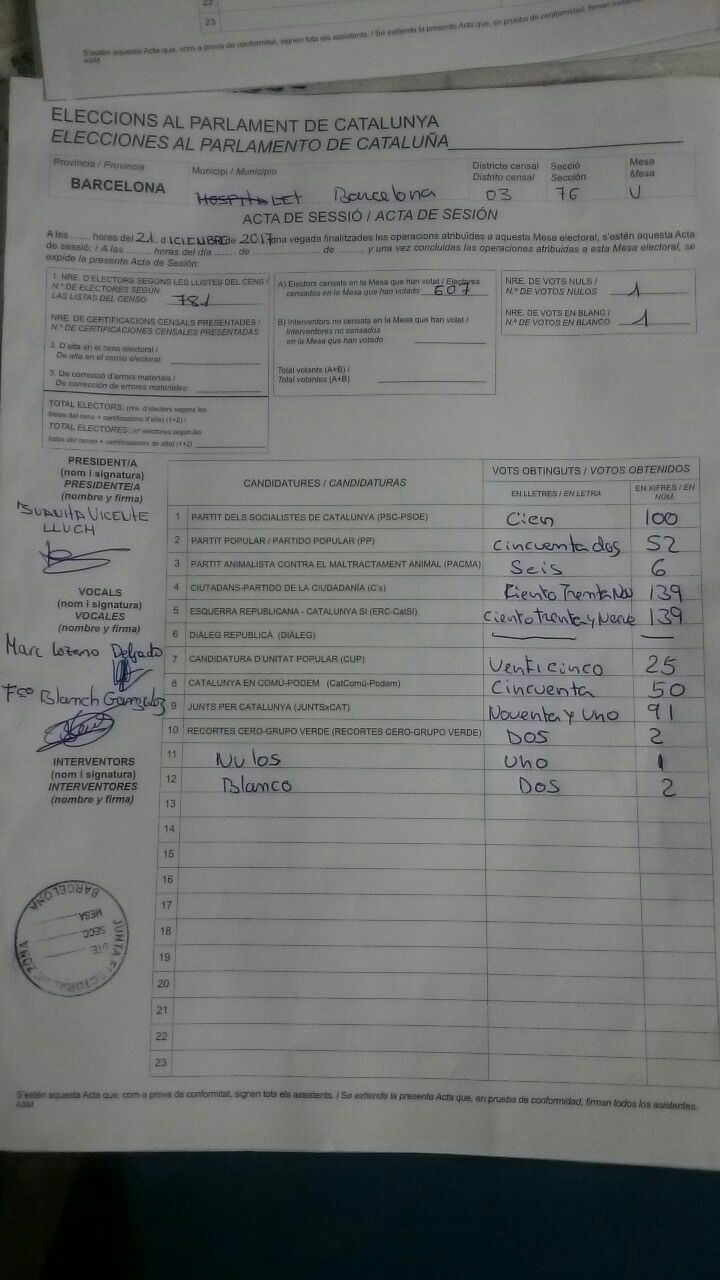 23
S'estén aquesta Acta que, com a prova de conformitat, signen tots els assistents. / Se extiende la presente Acta que, en prueba de conformidad, firman
ASM
ELECCIONS AL PARLAMENT DE CATALUNYA
ELECCIONES AL PARLAMENTO DE CATALUÑA
Província / Provincia
BARCELONA
Municipi / Municipio
HOSPITALET Barcelona
Districte censal
Distrito censal
03
Secció
Sección
76
Mesa
Mesa
U
ACTA DE SESSIÓ / ACTA DE SESIÓN
A les ........ hores del 21 d ICIEMBRE de 2017 una vegada finalitzades les operacions atribuïdes a aquesta Mesa electoral, s'estén aquesta Acta
de sessió: / A las ........ horas del día ........ de ........ de ........ y una vez concluidas las operaciones atribuidas a esta Mesa electoral, se
expide la presente Acta de Sesión:
1. NRE. D'ELECTORS SEGONS LES LLISTES DEL CENS /
N.º DE ELECTORES SEGÚN
LAS LISTAS DEL CENSO 781
NRE. DE CERTIFICACIONS CENSALS PRESENTADES /
N.º DE CERTIFICACIONES CENSALES PRESENTADAS
2. D'alta en el cens electoral /
De alta en el censo electoral:
3. De correcció d'errors materials /
De corrección de errores materiales:
TOTAL ELECTORS: (nre. d'electors segons les
llistes del cens + certificacions d'alta) (1+2) /
TOTAL ELECTORES: (nº electores según las
listas del censo + certificaciones de alta) (1+2)
A) Electors censats en la Mesa que han votat / Electores
censados en la Mesa que han votado 607
B) Interventors no censats en la Mesa que han votat /
Interventores no censados
en la Mesa que han votado
Total votants (A+B) /
Total votantes (A+B)
NRE. DE VOTS NULS /
N.º DE VOTOS NULOS 1
NRE. DE VOTS EN BLANC /
N.º DE VOTOS EN BLANCO 1
PRESIDENT/A
(nom i signatura)
PRESIDENTE/A
(nombre y firma)
VICENTE
LLUCH
VOCALS
(nom i signatura)
VOCALES
(nombre y firma)
Marc Lozano Delgado
Fco Blanch González
INTERVENTORS
(nom i signatura)
INTERVENTORES
(nombre y firma)
CANDIDATURES / CANDIDATURAS
VOTS OBTINGUTS / VOTOS OBTENIDOS
EN LLETRES / EN LETRA
EN XIFRES / EN NÚM.
1 PARTIT DELS SOCIALISTES DE CATALUNYA (PSC-PSOE) Cien 100
2 PARTIT POPULAR / PARTIDO POPULAR (PP) cincuenta dos 52
3 PARTIT ANIMALISTA CONTRA EL MALTRACTAMENT ANIMAL (PACMA) Seis 6
4 CIUTADANS-PARTIDO DE LA CIUDADANÍA (C's) Ciento Treinta 139
5 ESQUERRA REPUBLICANA - CATALUNYA SÍ (ERC-CatSí) Ciento treinta y Nueve 139
6 DIÀLEG REPUBLICÀ (DIÀLEG) — —
7 CANDIDATURA D'UNITAT POPULAR (CUP) Venticinco 25
8 CATALUNYA EN COMÚ-PODEM (CatComú-Podem) Cincuenta 50
9 JUNTS PER CATALUNYA (JUNTSxCAT) Noventa y Uno 91
10 RECORTES CERO-GRUPO VERDE (RECORTES CERO-GRUPO VERDE) DOS 2
11 Nulos Uno 1
12 Blanco Dos 2
13
14
15
16
17
18
19
20
21
22
23
JUNTA ELECTORAL DE ZONA
BARCELONA
DTE.
SECC.
MESA
S'estén aquesta Acta que, com a prova de conformitat, signen tots els assistents. / Se extiende la presente Acta que, en prueba de conformidad, firman todos los asistentes.
ASM